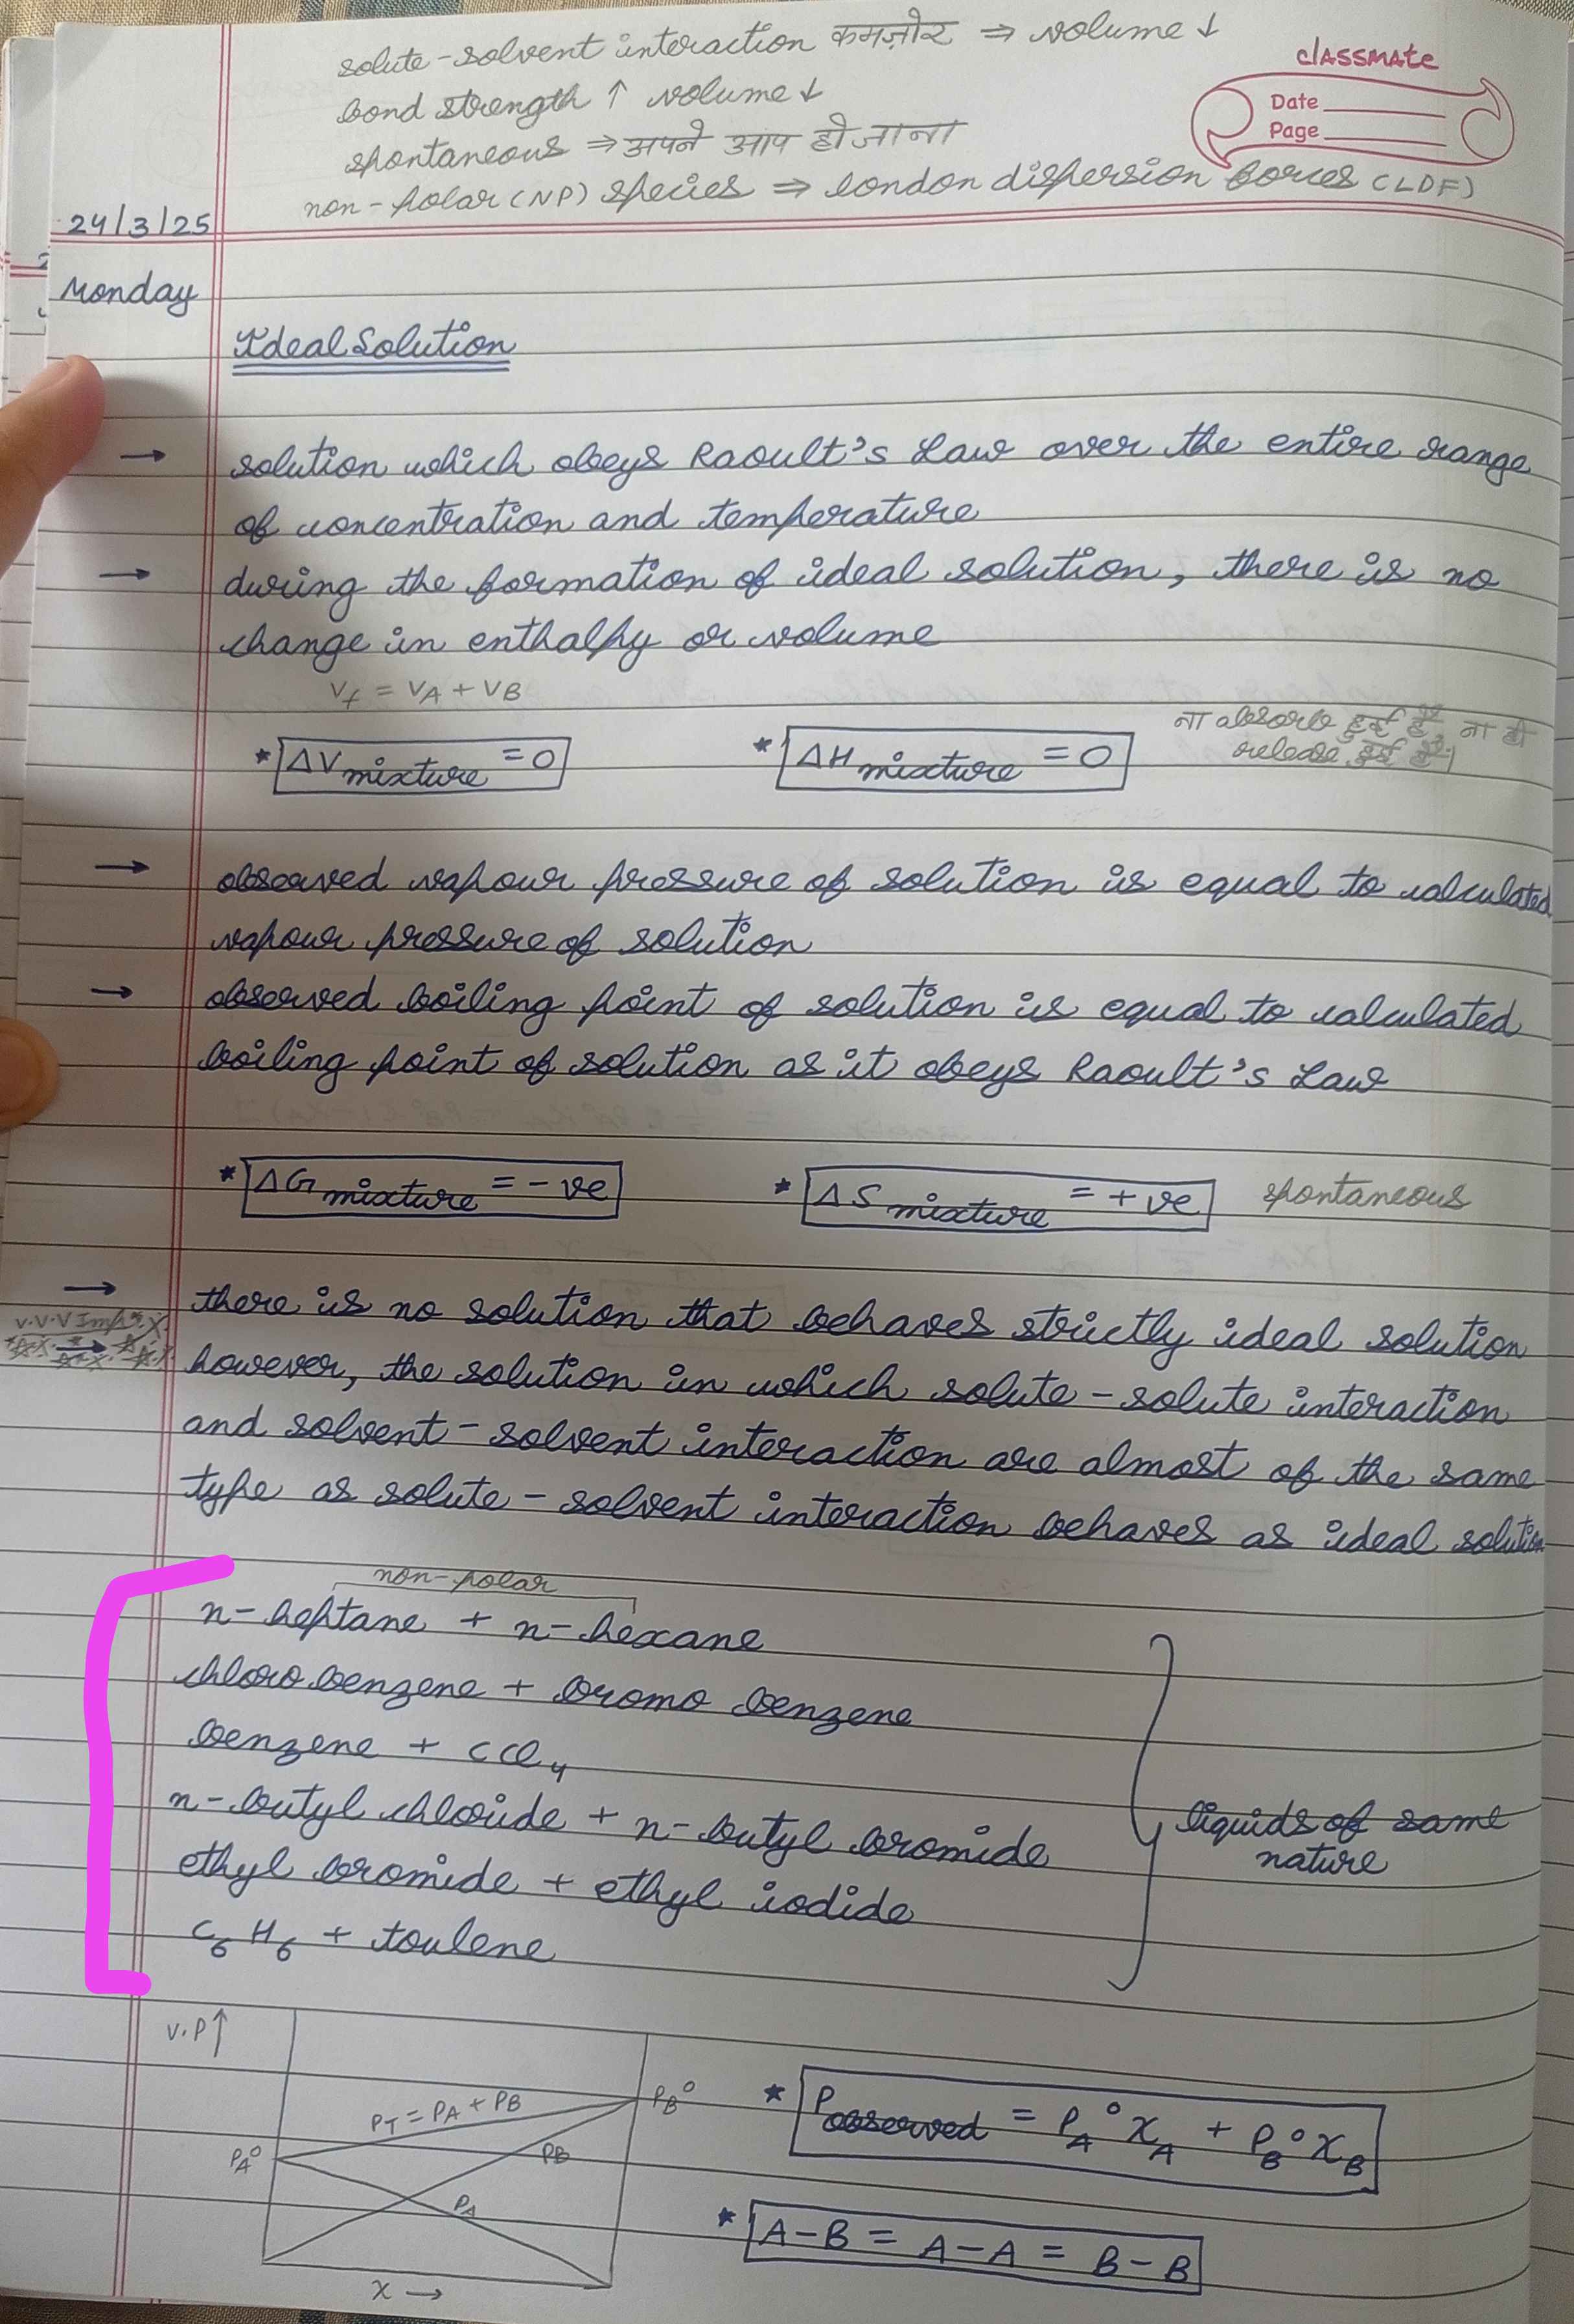 solute-solvent interaction कमज़ोर ⇒ volume ↓
bond strength ↑ volume ↓
spontaneous ⇒ अपने आप हो जाना
non-polar (NP) species ⇒ london dispersion forces (LDF)
classmate
Date
Page
24/3/25
Monday
Ideal Solution
→ solution which obeys Raoult's Law over the entire range
of concentration and temperature
→ during the formation of ideal solution, there is no
change in enthalpy or volume
Vf = VA + VB
* ΔV mixture = 0 * ΔH mixture = 0
ना absorb हुई है ना ही
release हुई है।
→ observed vapour pressure of solution is equal to calculated
vapour pressure of solution
→ observed boiling point of solution is equal to calculated
boiling point of solution as it obeys Raoult's Law
* ΔG mixture = -ve * ΔS mixture = +ve spontaneous
→ there is no solution that behaves strictly ideal solution
v.v.v Imp
however, the solution in which solute-solute interaction
and solvent-solvent interaction are almost of the same
type as solute-solvent interaction behaves as ideal solution
non-polar
n-heptane + n-hexane
chloro benzene + bromo benzene
benzene + CCl4
n-butyl chloride + n-butyl bromide
ethyl bromide + ethyl iodide
C6H6 + toulene
liquids of same
nature
V.P ↑
PT = PA + PB
PB°
PA°
PB
PA
x →
* Pobserved = PA° xA + PB° xB
* A-B = A-A = B-B